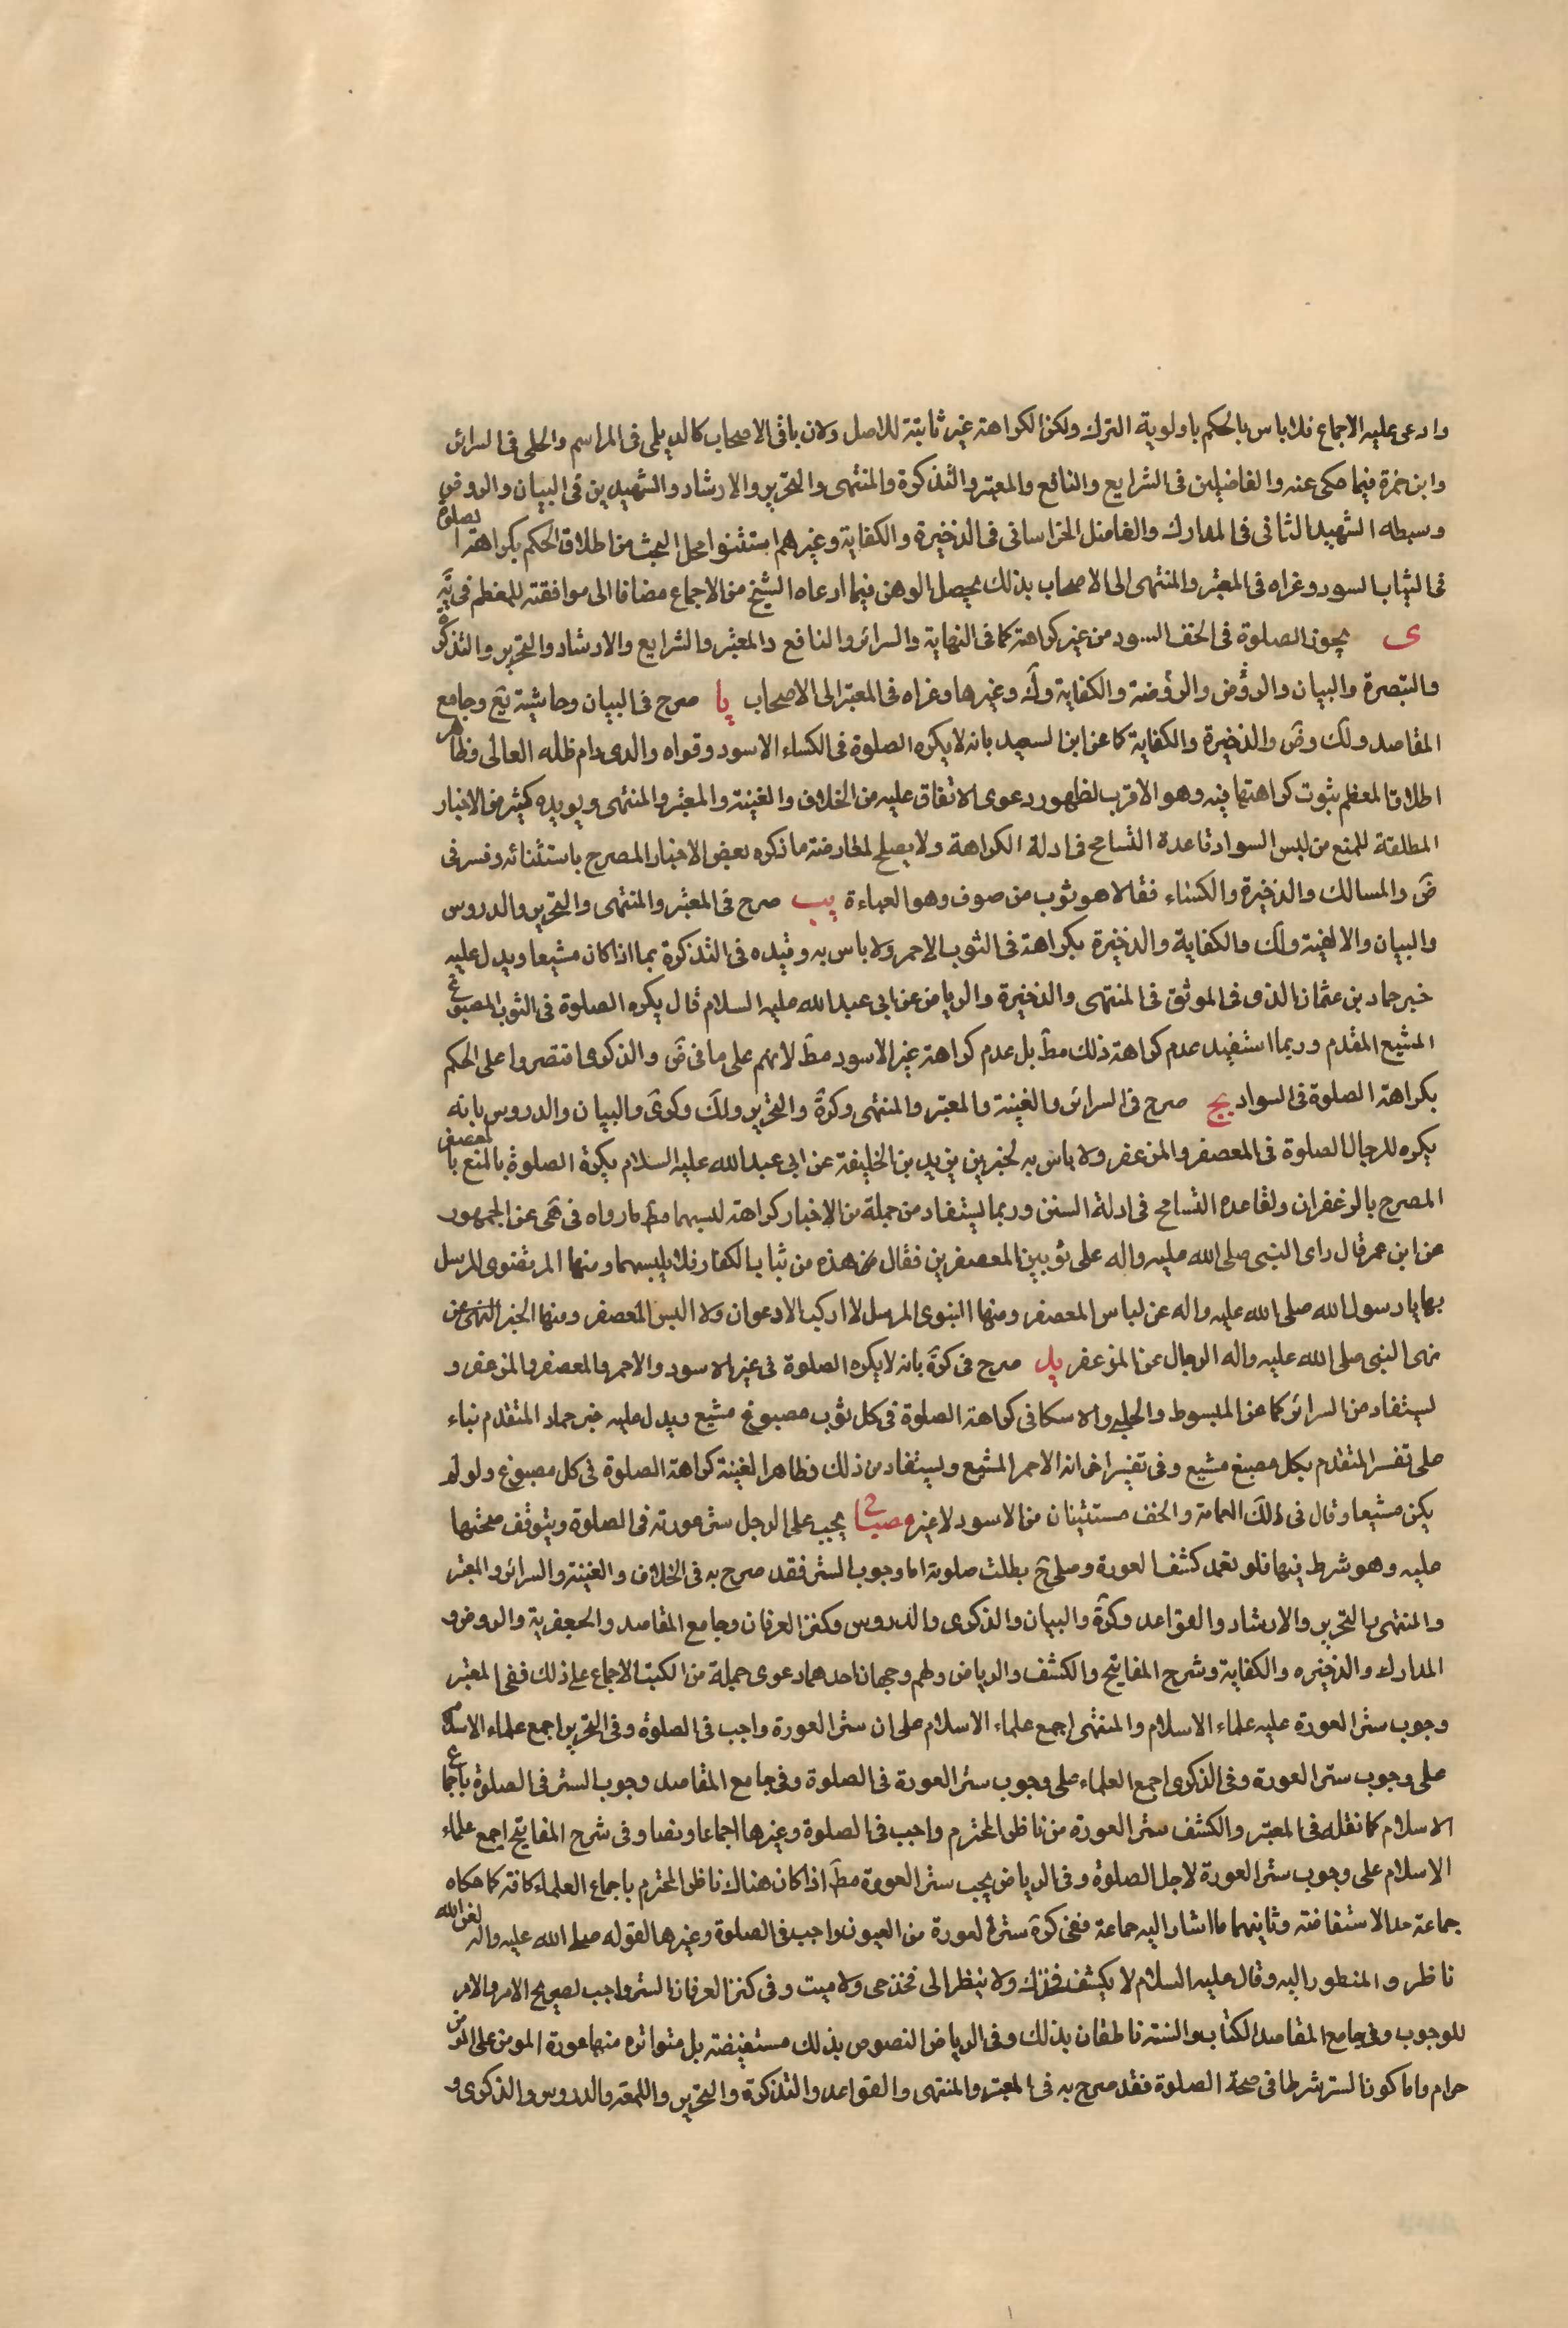 وادعى عليه الاجماع فلا باس بالحكم باولوية الترك ولكن الكراهة غير ثابتة للاصل ولان باقى الاصحاب كالديلمى فى المراسم والحلى فى السرائر
وابن حمزة فيما حكى عنه والفاضلين فى الشرايع والنافع والمعتبر والتذكرة والمنتهى والتحرير والارشاد والشهيدين فى البيان والروض
وسبطه الشهيد الثانى فى المدارك والفاضل الخراسانى فى الذخيرة والكفاية وغيرهم استثنوا محل البحث من اطلاق الحكم بكراهة الصلوة
فى الثياب السود وعزاه فى المعتبر والمنتهى الى الاصحاب بذلك يحصل الوهن فيما ادعاه الشيخ من الاجماع مضافا الى موافقته للمعظم فى يَه
ى يجوز الصلوة فى الخف السود من غير كراهة كما فى النهاية والسرائر والنافع والمعتبر والشرايع والارشاد والتحرير والتذكرة
والتبصرة والبيان والروض والروضة والكفاية ولَك وغيرها وعزاه فى المعتبر الى الاصحاب يا صرح فى البيان وحاشية يع وجامع
المقاصد ولك وضَ والذخيرة والكفاية كما عن ابن السعيد بانه لا يكره الصلوة فى الكساء الاسود وقواه والدى دام ظله العالى وظاهر
اطلاق المعظم ثبوت كراهتها فيه وهو الاقرب لظهور دعوى الاتفاق عليه من الخلاف والغينة والمعتبر والمنتهى ويويده كثير من الاخبار
المطلقة للمنع من لبس السواد قاعدة التسامح فى ادلة الكراهة ولا يصلح لمعارضته ما ذكره بعض الاخبار المصرح باستثنائه وفسر فى
ضَ والمسالك والذخيرة والكساء فقالا هو ثوب من صوف وهو العباءة يب صرح فى المعتبر والمنتهى والتحرير والدروس
والبيان والالفية ولك والكفاية والذخيرة بكراهة فى الثوب الاحمر ولا باس به وقيده فى التذكرة بما اذا كان مشبعا ويدل عليه
خبر حماد بن عثمان الذى فى الموثق فى المنتهى والذخيرة والرياض عن ابى عبد الله عليه السلام قال يكره الصلوة فى الثوب المصبوغ
المشبع المقدم وربما استفيد عدم كراهة ذلك مطَ بل عدم كراهة غير الاسود مطَ لانهم على ما فى ضَ والذكرى اقتصروا على الحكم
بكراهة الصلوة فى السواد يج صرح فى السرائر والغينة والمعتبر والمنتهى وكرة والتحرير ولك وكرى والبيان والدروس بانه
يكره للرجال الصلوة فى المعصفر والمزعفر ولا باس به لخبرين يزيد بن الخليفة عن ابى عبد الله عليه السلام يكره الصلوة بالمنع با لمعصفر
المصرح بالزغفران ولقاعدة التسامح فى ادلة السنن وربما يستفاد من جملة من الاخبار كراهة لبسهما مطَ ما رواه فى هى عن الجمهور
عن ابن عمر قال راى النبى صلى الله عليه واله على ثوبين المعصفرين فقال من هذه من ثياب الكفار فلا يلبسهما ومنها المرتضوى المرسل
بها يا رسول الله صلى الله عليه واله عن لباس المعصفر ومنها النبوى المرسل لا اركب الادعوان ولا البس المعصفر ومنها الخبر النهى عن
نهى النبى صلى الله عليه واله الرجال عن المزعفر يد صرح فى كرة بانه لا يكره الصلوة فى غير الاسود والاحمر والمعصفر والمزعفر و
يستفاد من السرائر كما عن المبسوط والحلى والاسكافى كراهة الصلوة فى كل ثوب مصبوغ مشبع ويدل عليه خبر حماد المتقدم بناء
على تفسر المتقدم بكل مصبغ مشبع وفى تفسير اخر انه الاحمر المشبع ويستفاد من ذلك وظاهر الغينة كراهة الصلوة فى كل مصبوغ ولو لم
يكن مشبعا وقال فى لك العمامة والخف مستثنان من الاسود لا غير مصباح يجب على الرجل ستر عورته فى الصلوة ويتوقف صحتها
عليه وهو شرط فيها فلو تعمد كشف العورة وصلى حَ بطلت صلوته اما وجوب الستر فقد صرح به فى الخلاف والغينة والسرائر والمعتبر
والمنتهى والتحرير والارشاد والقواعد وكرة والبيان والذكرى والدروس وكنز العرفان وجامع المقاصد والجعفرية والروض و
المدارك والذخيره والكفاية وشرح المفاتيح والكشف والرياض ولهم وجهان احدهما دعوى جملة من الكتب الاجماع على ذلك ففى المعتبر
وجوب ستر العورة عليه علماء الاسلام والمنتهى اجمع علماء الاسلام على ان ستر العورة واجب فى الصلوة وفى التحرير اجمع علماء الاسلام
على وجوب ستر العورة وفى الذكرى اجمع العلماء على وجوب ستر العورة فى الصلوة وفى جامع المقاصد وجوب الستر فى الصلوة باجماع
الاسلام كما نقله فى المعتبر والكشف ستر العورة من ناظر المحترم واجب فى الصلوة وغيرها اجماعا ونصا وفى شرح المفاتيح اجمع علماء
الاسلام على وجوب ستر العورة لاجل الصلوة وفى الرياض يجب ستر العورة مطَ اذا كان هناك ناظر المحترم باجماع العلماء كافة كما حكاه
جماعة حد الاستفاضة وثانيهما ما اشار اليه جماعة ففى كرة ستر العورة من العيون واجب فى الصلوة وغيرها لقوله صلى الله عليه واله لعن الله
ناظر والمنطور اليه وقال عليه السلام لا يكشف فخذك ولا ينظر الى فخذ حى ولا ميت وفى كنز العرفان الستر واجب لصريح الامر والامر
للوجوب وفى جامع المقاصد الكتاب والسنة ناطقان بذلك وفى الرياض النصوص بذلك مستفيضة بل متواتره منها عورة المومن على المومن
حرام واما كون الستر شرطا فى صحة الصلوة فقد صرح به فى المعتبر والمنتهى والقواعد والتذكرة والتحرير واللمعة والدروس والذكرى و